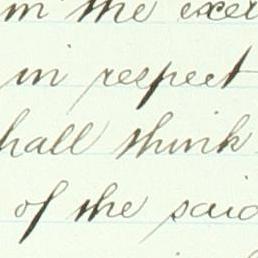 in the exer
in respect
hall think
of the said